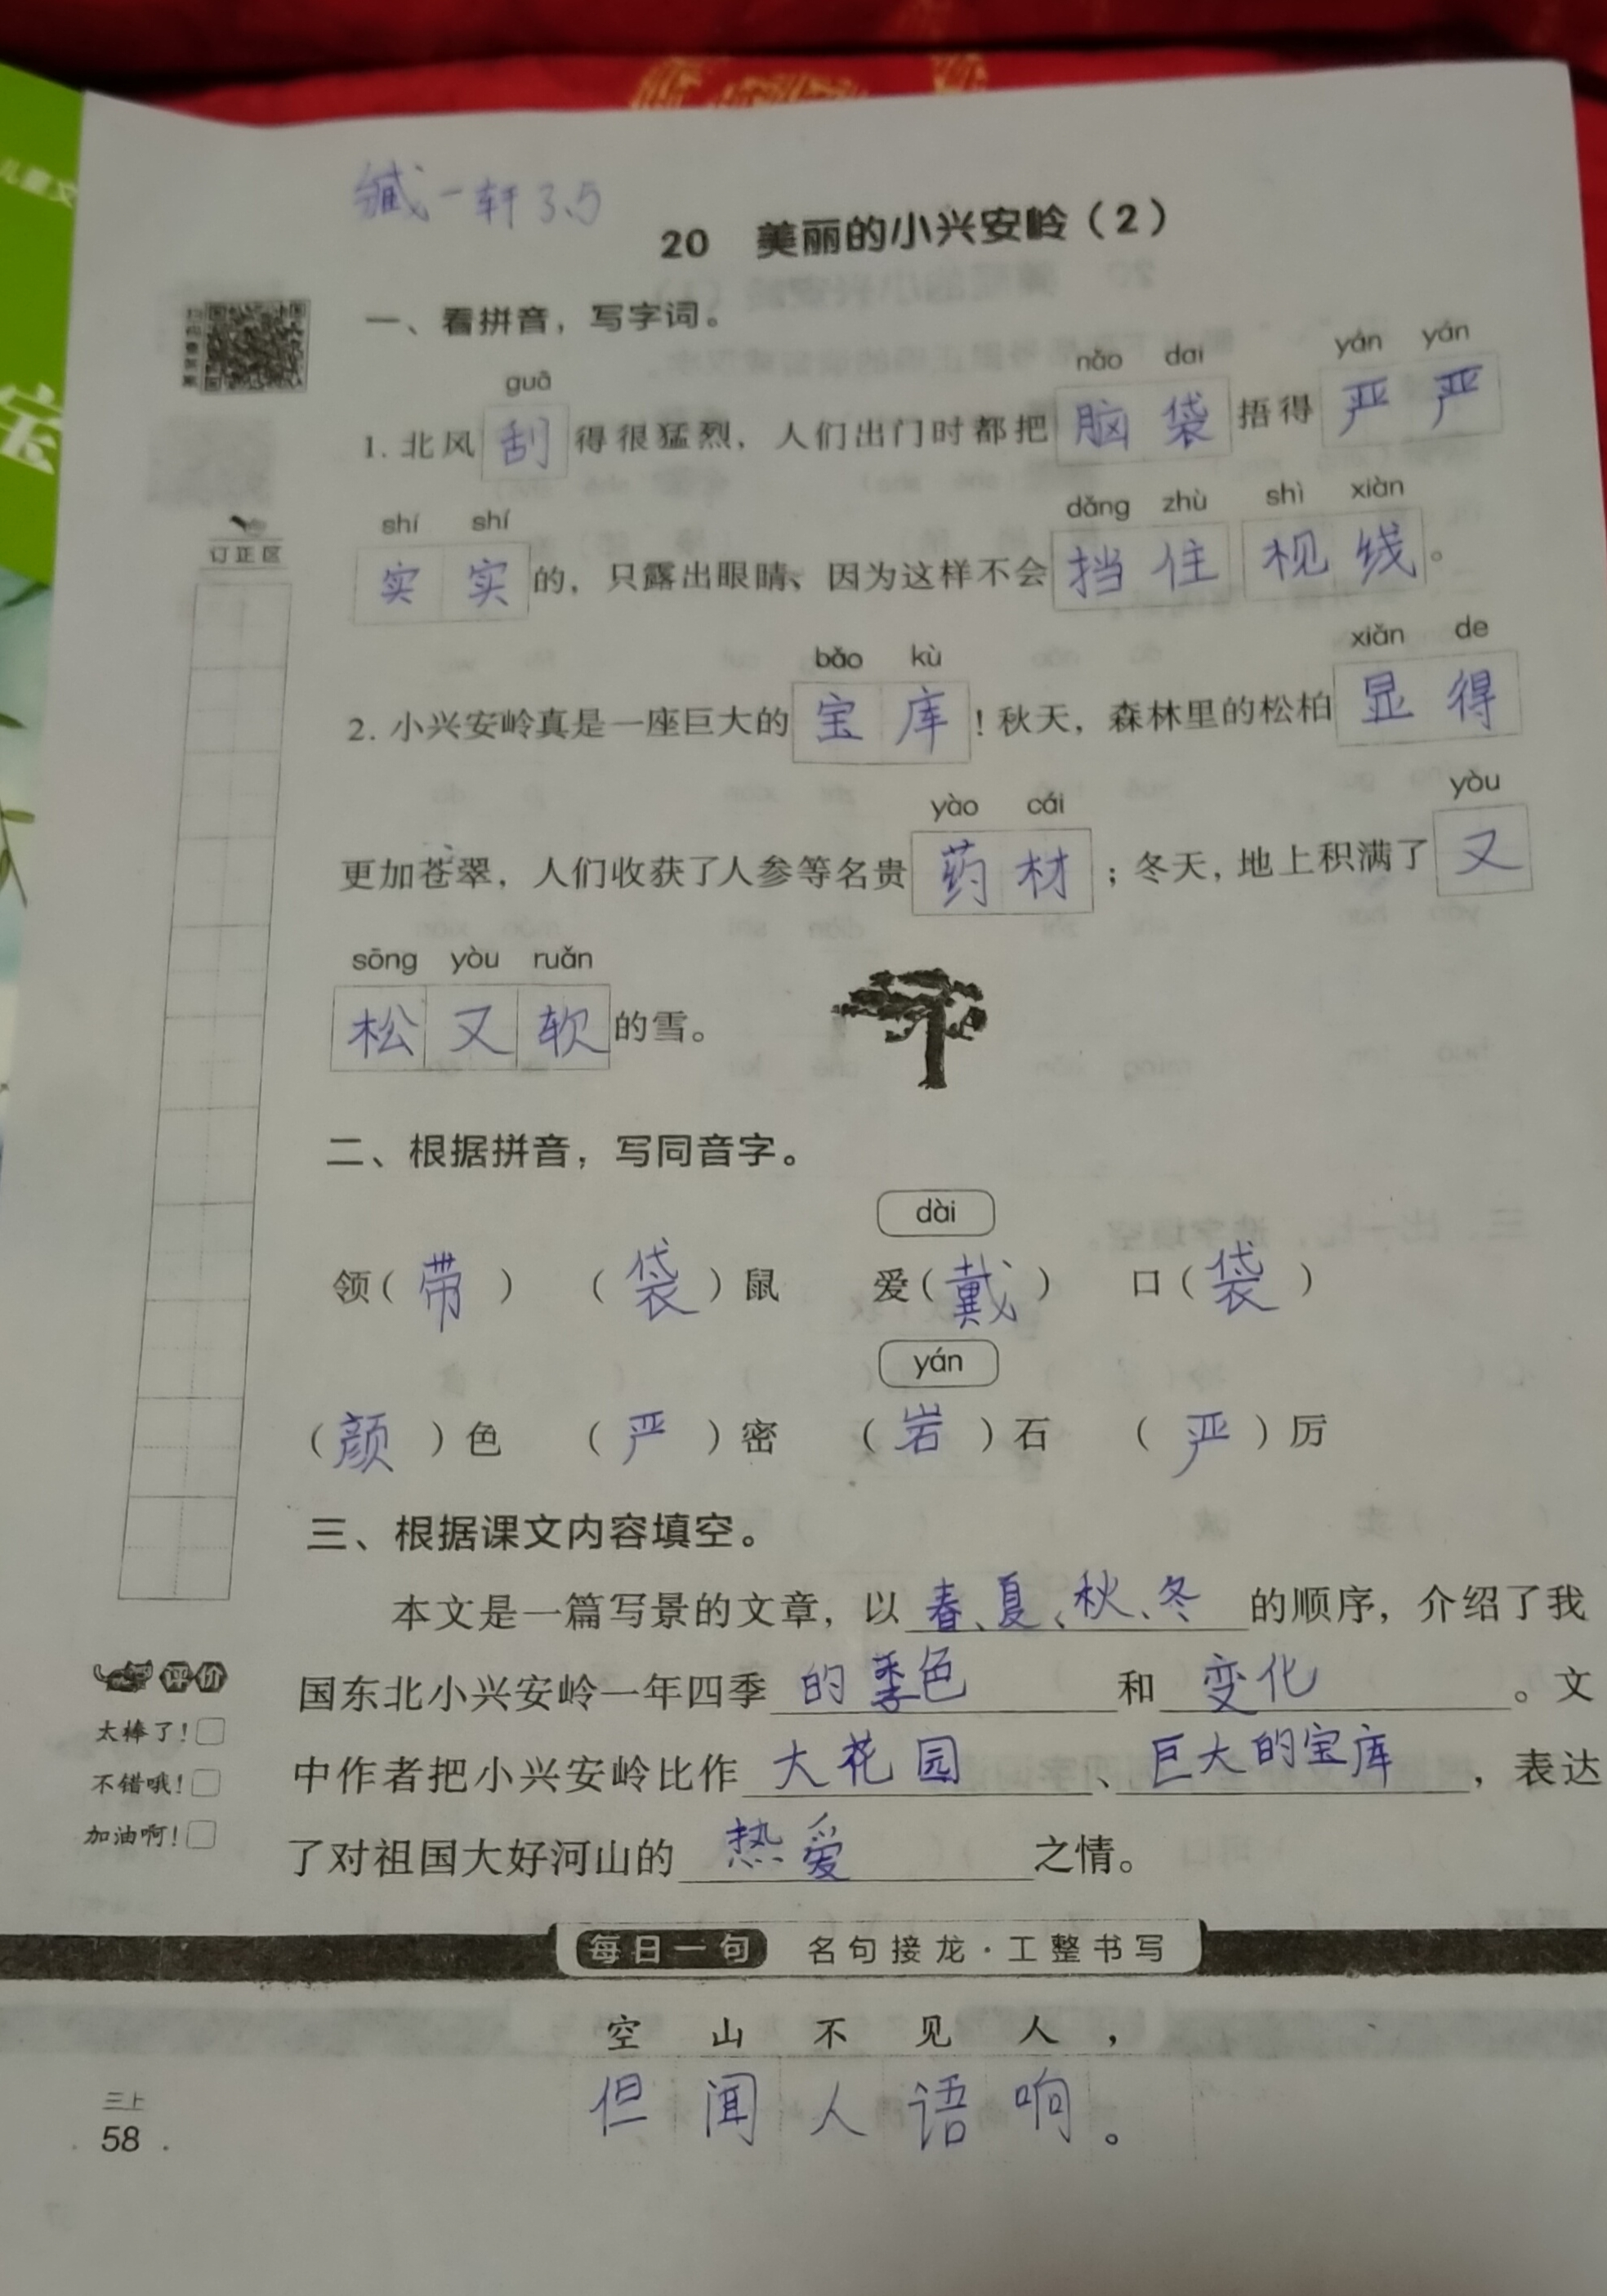 儿童文
宝
缄一轩 3.5
20 美丽的小兴安岭（2）
一、看拼音，写字词。
guā nǎo dai yán yán
1. 北风 刮 得很猛烈，人们出门时都把 脑袋 捂得 严严
shí shí dǎng zhù shì xiàn
订正区
实实 的，只露出眼睛、因为这样不会 挡住 视线 。
bǎo kù xiǎn de
2. 小兴安岭真是一座巨大的 宝库 ！秋天，森林里的松柏 显得
yào cái yòu
更加苍翠，人们收获了人参等名贵 药材 ；冬天，地上积满了 又
sōng yòu ruǎn
松又软 的雪。
二、根据拼音，写同音字。
dài
领（带） （袋）鼠 爱（戴） 口（袋）
yán
（颜）色 （严）密 （岩）石 （严）厉
三、根据课文内容填空。
本文是一篇写景的文章，以 春、夏、秋、冬 的顺序，介绍了我
国东北小兴安岭一年四季 的季色 和 变化 。文
中作者把小兴安岭比作 大花园 、巨大的宝库 ，表达
了对祖国大好河山的 热爱 之情。
评价
太棒了！□
不错哦！□
加油啊！□
每日一句 名句接龙·工整书写
空山不见人，
但闻人语响。
三上
58